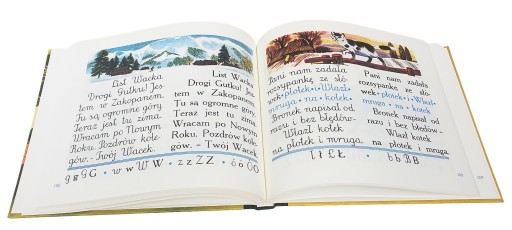 List Wacka
Drogi Gutku! Jes-
tem w Zakopanem.
Tu są ogromne góry.
Teraz jest tu zima.
Wracam po Nowym
Roku. Pozdrów kole-
gów. - Twój Wacek.
List Wacka
Drogi Gutku! Jes-
tem w Zakopanem.
Tu są ogromne góry.
Teraz jest tu zima.
Wracam po Nowym
Roku. Pozdrów kole-
gów. - Twój Wacek.
g g G G • w w W W • z z Z Z • ó ó Ó Ó
Pani nam zadała
rozsypankę ze słó-
wek • płotek • i • Wlazł
mruga • na • kotek
Bronek napisał od
razu i bez błędów-
Wlazł kotek
na płotek i mruga.
Pani nam zadała
rozsypankę ze słó-
wek • płotek • i • Wlazł
mruga • na • kotek
Bronek napisał od
razu i bez błędów-
Wlazł kotek
na płotek i mruga.
ł ł Ł Ł • b b B B